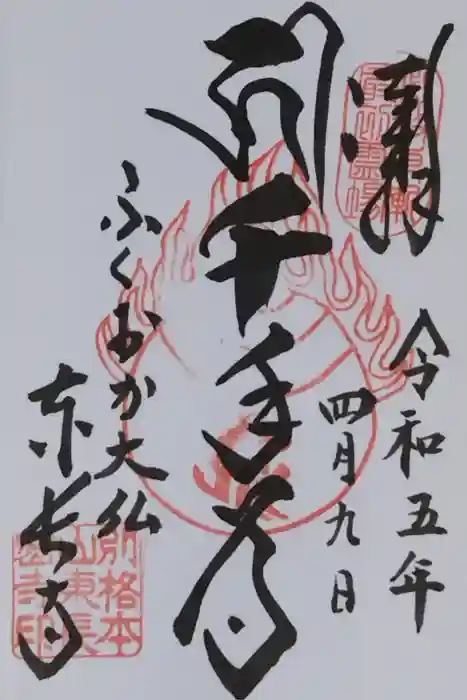 奉拝
令和五年
四月九日
千手尊
ふくおか大仏
東長寺
別格本
山東長
密寺印